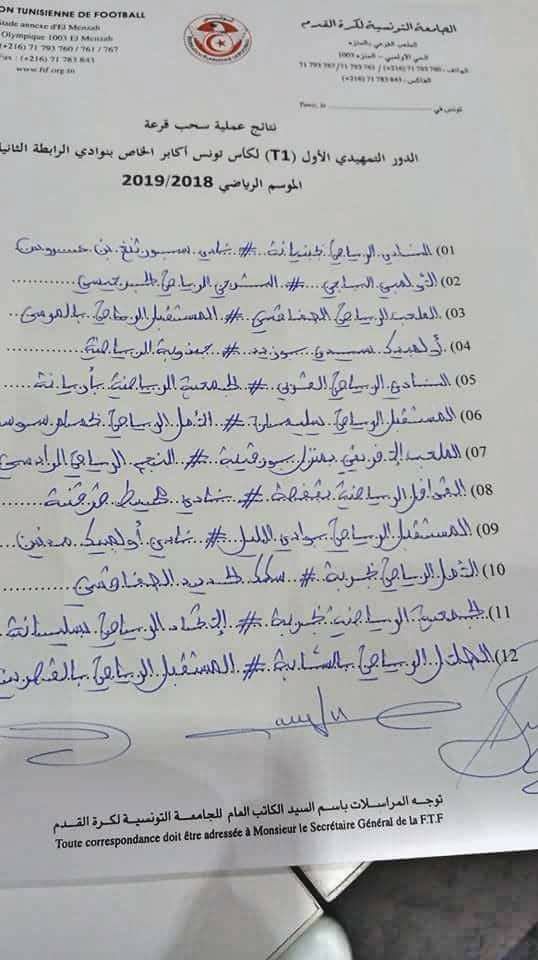 ON TUNISIENNE DE FOOTBALL
Stade annexe d'El Menzah
Olympique 1003 El Menzah
(+216) 71 793 760 / 761 / 767
Fax : (+216) 71 783 843
www.ftf.org.tn
الجامعة التونسية لكرة القدم
الملعب الفرعي بالمنزه
الحي الأولمبي - المنزه 1003
الهاتف : 71 793 760 (216+) / 71 793 761 / 71 793 767
الفاكس : 71 783 843 (216+)
تونس في Tunis, le
نتائج عملية سحب قرعة
الدور التمهيدي الأول (T1) لكأس تونس أكابر الخاص بنوادي الرابطة الثانية
الموسم الرياضي 2019/2018
01) النادي الرياضي بجبنيانة # نادي سبورتنغ بن عروس
02) الأولمبي الباجي # الترجي الرياضي الجرجيسي
03) الملعب الرياضي الصفاقسي # المستقبل الرياضي بالمرسى
04) أولمبيك سيدي بوزيد # جندوبة الرياضية
05) النادي الرياضي # الجمعية الرياضية بأريانة
06) المستقبل الرياضي بسليمان # الأمل الرياضي بحمام سوسة
07) الملعب الإفريقي بمنزل بورقيبة # النجم الرياضي الرادسي
08) القوافل الرياضية بقفصة # نادي محيط قرقنة
09) المستقبل الرياضي بوادي الليل # نادي أولمبيك مدنين
10) الأمل الرياضي بجربة # سكك الحديد الصفاقسي
11) الجمعية الرياضية بجربة # الإتحاد الرياضي بسليانة
12) الهلال الرياضي بالشابة # المستقبل الرياضي بالقصرين
توجه المراسلات باسم السيد الكاتب العام للجامعة التونسية لكرة القدم
Toute correspondance doit être adressée à Monsieur le Secrétaire Général de la F.T.F